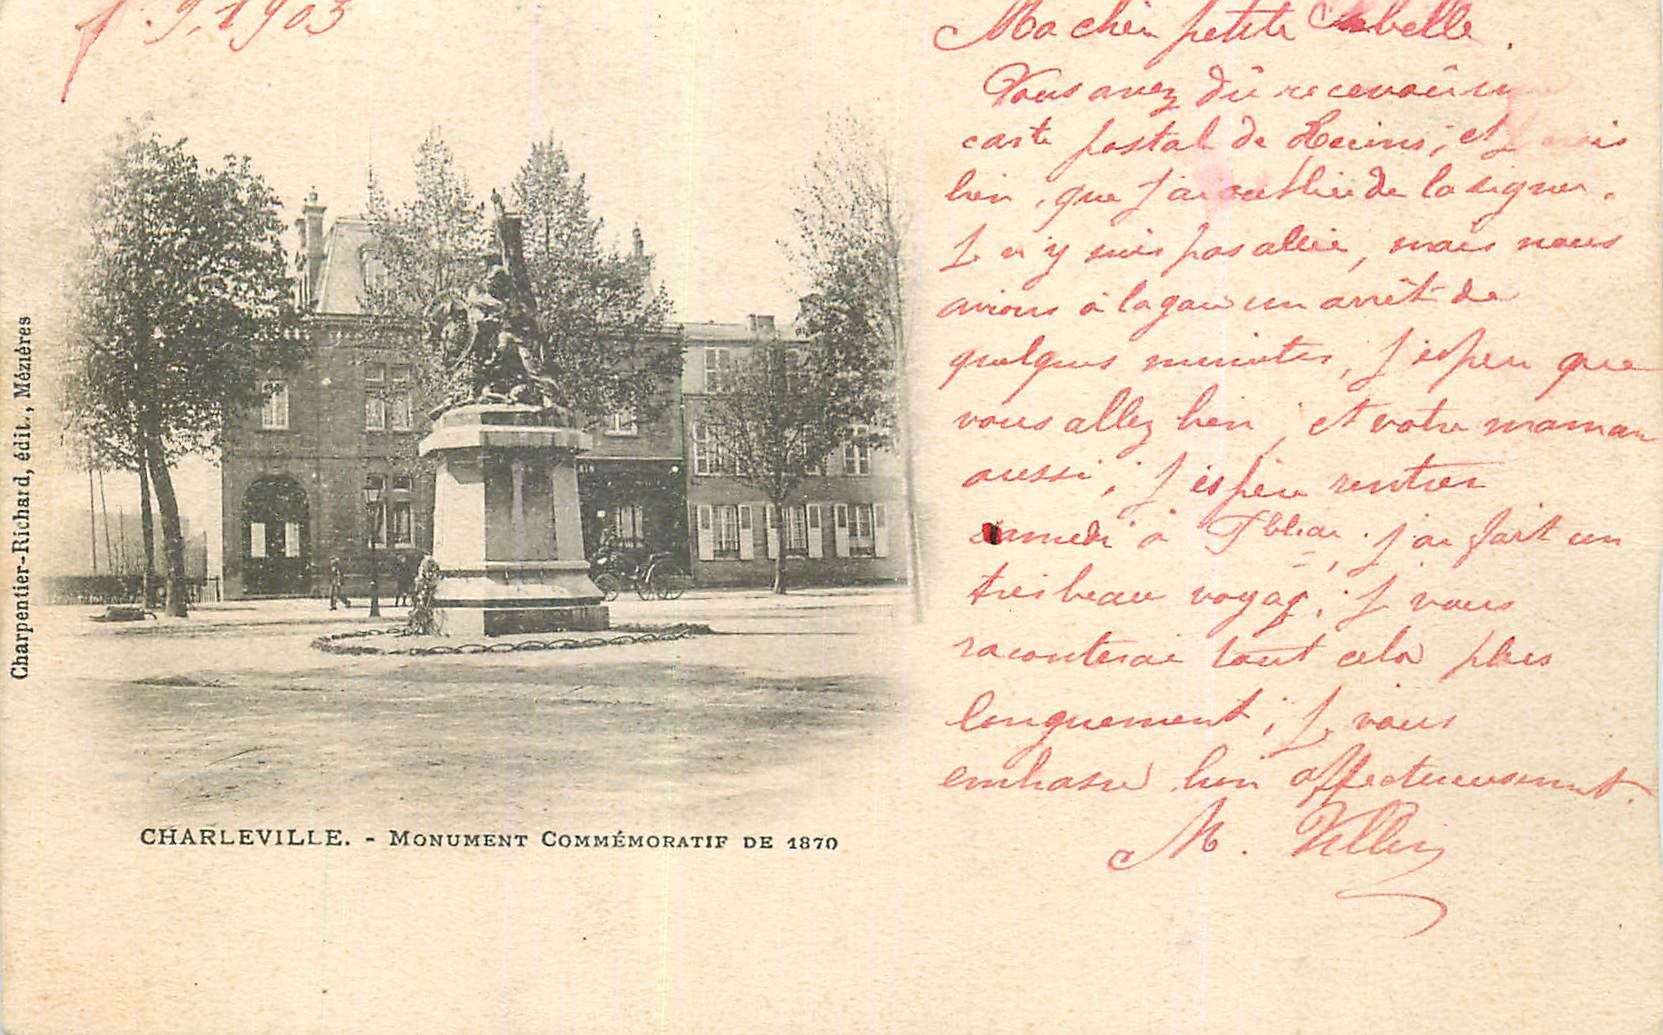 9, 1903
Ma chère petite
Vous avez dû recevoir un
carte postal de Reims, et
bien, que j'ai oublié de la signer.
Je n'y suis pas allée, mais nous
avions à la gare un arrêt de
quelques minutes, j'espère que
vous allez bien, et votre maman
aussi, j'espère rentrer
samedi à Fbleau. j'ai fait un
très beau voyage, je vous
raconterai tout cela plus
longuement, je vous
embrasse bien affectueusement.
M.
Charpentier-Richard, édit., Mézières
CHARLEVILLE. - MONUMENT COMMÉMORATIF DE 1870